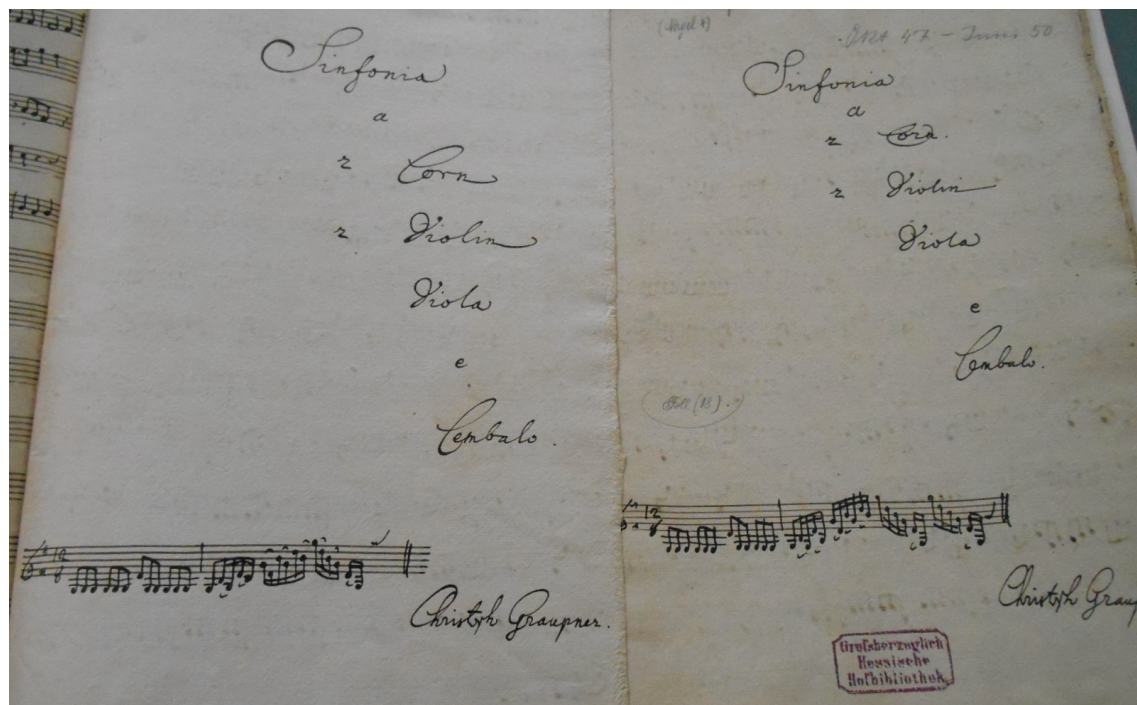 Sinfonia
a
2 Corn
2 Violin
Viola
e
Cembalo.
12
8
Christoph Graupner.
(Nagel 4)
Okt 47 – Juni 50
Sinfonia
a
2 Cord.
2 Violin
Viola
e
Cembalo.
(18).
12
8
Christoph Graup
Großherzoglich
Hessische
Hofbibliothek.